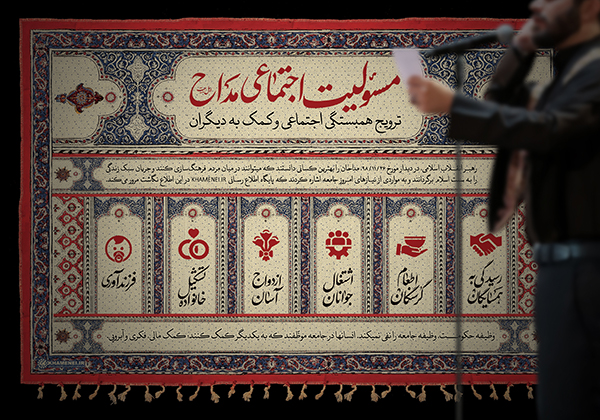 مسئولیت اجتماعی مداح
ترویج همبستگی اجتماعی و کمک به دیگران
رهبر انقلاب اسلامی، در دیدار مورخ ۹۸/۱۱/۲۶ مداحان را بهترین کسانی دانستند که میتوانند در میان مردم، فرهنگسازی کنند و جریان سبک زندگی
را به سمت اسلام برگردانند و به مواردی از نیازهای امروز جامعه اشاره کردند که پایگاه اطلاع رسانی KHAMENEI.IR در این اطلاع نگاشت مرور می‌کند.
رسیدگی به همسایگان
اطعام گرسنگان
اشتغال جوانان
ازدواج آسان
تشکیل خانواده
فرزندآوری
وظیفه حکومت، وظیفه جامعه را نفی نمیکند. انسانها در جامعه موظفند که به یکدیگر کمک کنند؛ کمک مالی، فکری و آبرویی.
KHAMENEI.IR